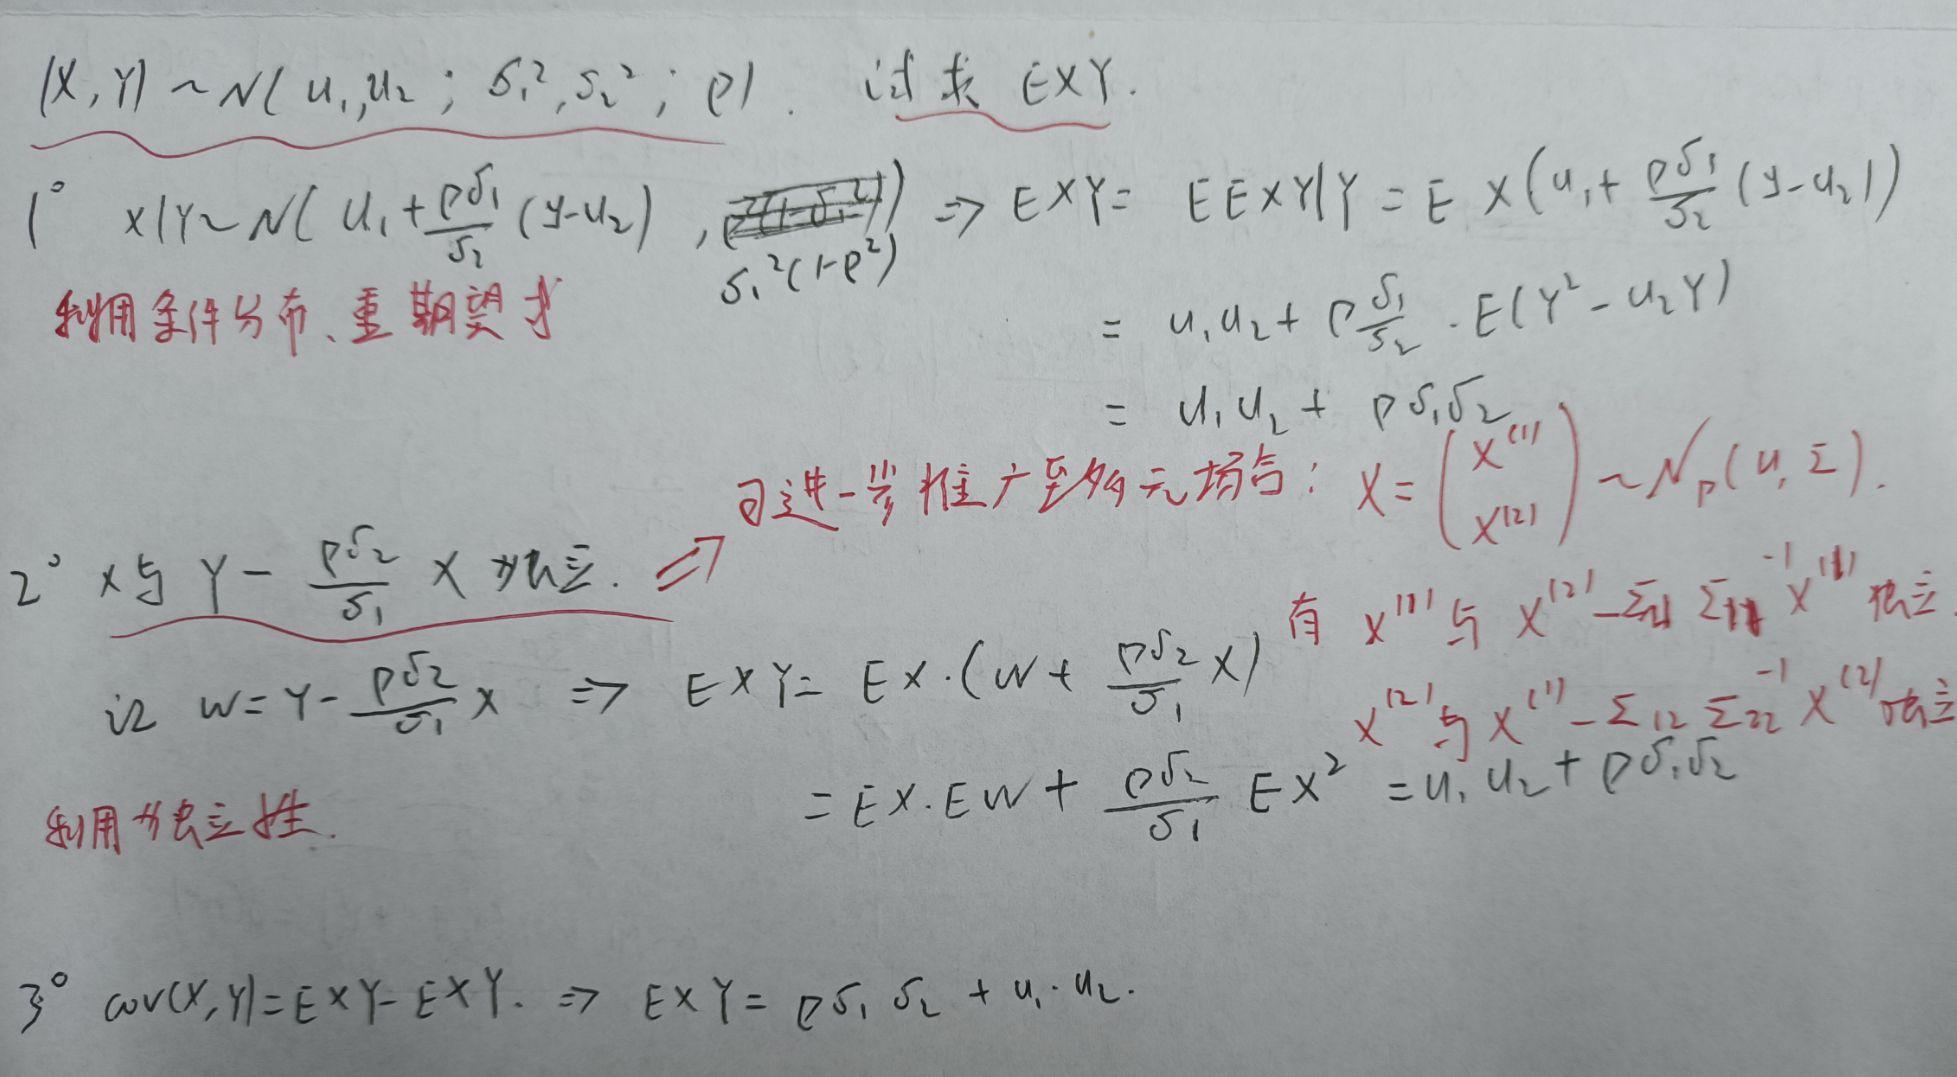 (X, Y) ~ N( u₁, u₂ ; σ₁², σ₂² ; ρ) . 试求 EXY.
1° X|Y ~ N( u₁ + ρσ₁/σ₂ (y-u₂) , σ₁²(1-ρ²) ) => EXY = EEXY|Y = E X(u₁ + ρσ₁/σ₂ (y-u₂))
利用条件分布、重期望求
= u₁u₂ + ρ σ₁/σ₂ · E(Y² - u₂Y)
= u₁u₂ + ρσ₁σ₂
可进一步推广至多元场合: X = (X⁽¹⁾ X⁽²⁾) ~ Nₚ(u, Σ).
2° X与 Y - ρσ₂/σ₁ X 独立. =>
有 X⁽¹⁾与 X⁽²⁾ - Σ₂₁ Σ₁₁⁻¹ X⁽¹⁾ 独立
记 W = Y - ρσ₂/σ₁ X => EXY = EX·(W + ρσ₂/σ₁ X)
X⁽²⁾与 X⁽¹⁾ - Σ₁₂ Σ₂₂⁻¹ X⁽²⁾ 独立
= EX·EW + ρσ₂/σ₁ EX² = u₁u₂ + ρσ₁σ₂
利用独立性.
3° cov(X,Y) = EXY - EXY. => EXY = ρσ₁σ₂ + u₁·u₂.